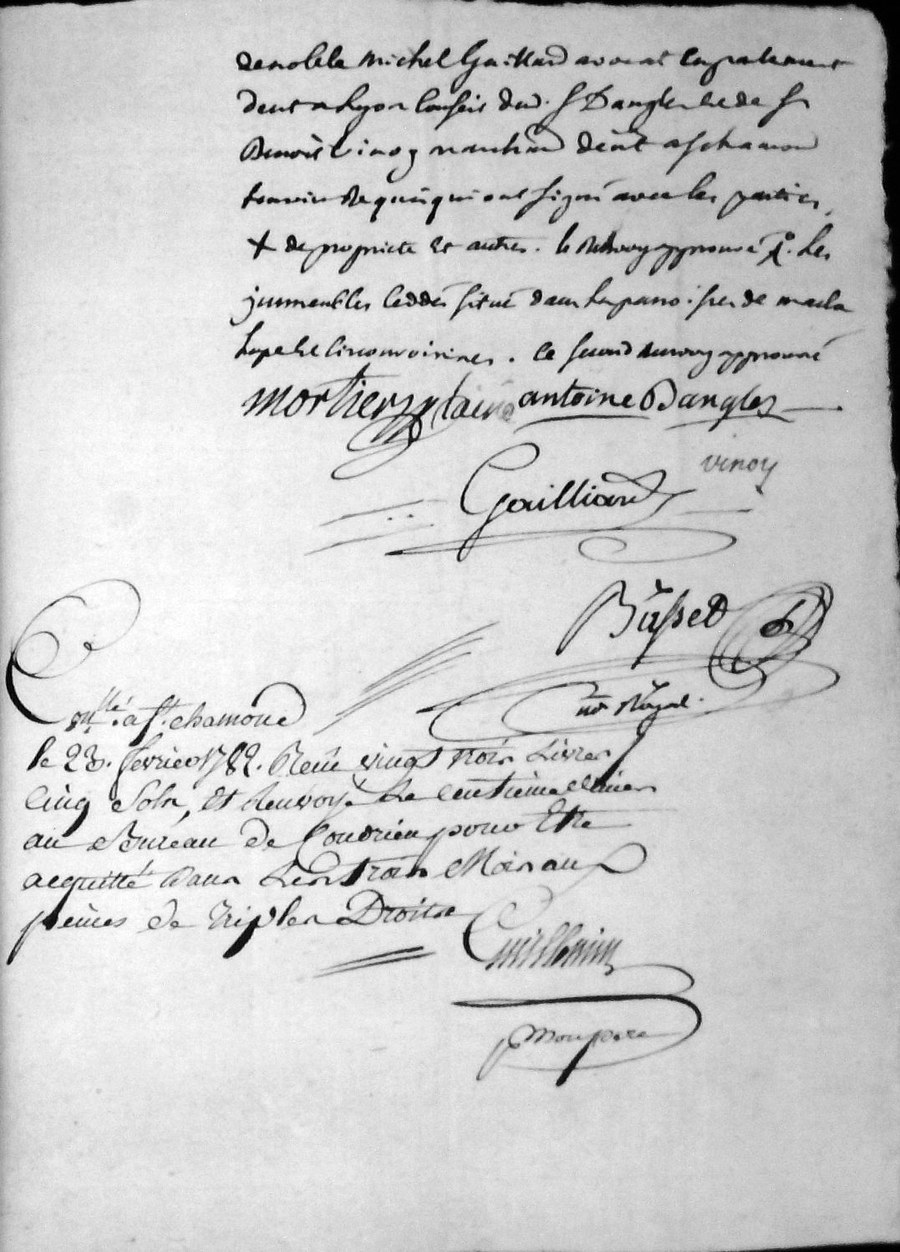 de noble Michel Gaillard avocat en parlement
deut a Lyon conseil dud. S Dangles et de Sr
Benoist vinoy marchand de st chamond
temoins requis qui ont signé avec les parties,
+ de propriete et autres. le renvoy approuvé . les
jmmeubles ceddés situé dans la paroisse de
et circonvoisines. le second renvoy approuvé
mortier antoine Dangles
vinoy
Gailliard
Busset
nre Royal.
Con.llé a st. chamond
le 23. fevrier 1782. Reçu vingt trois Livres
cinq sols, et Renvoyé Le Centieme denier
au Bureau de Condrieu pour Etre
acquitté dans Les trois Mois aux
peines de triples Droits
Guillemin